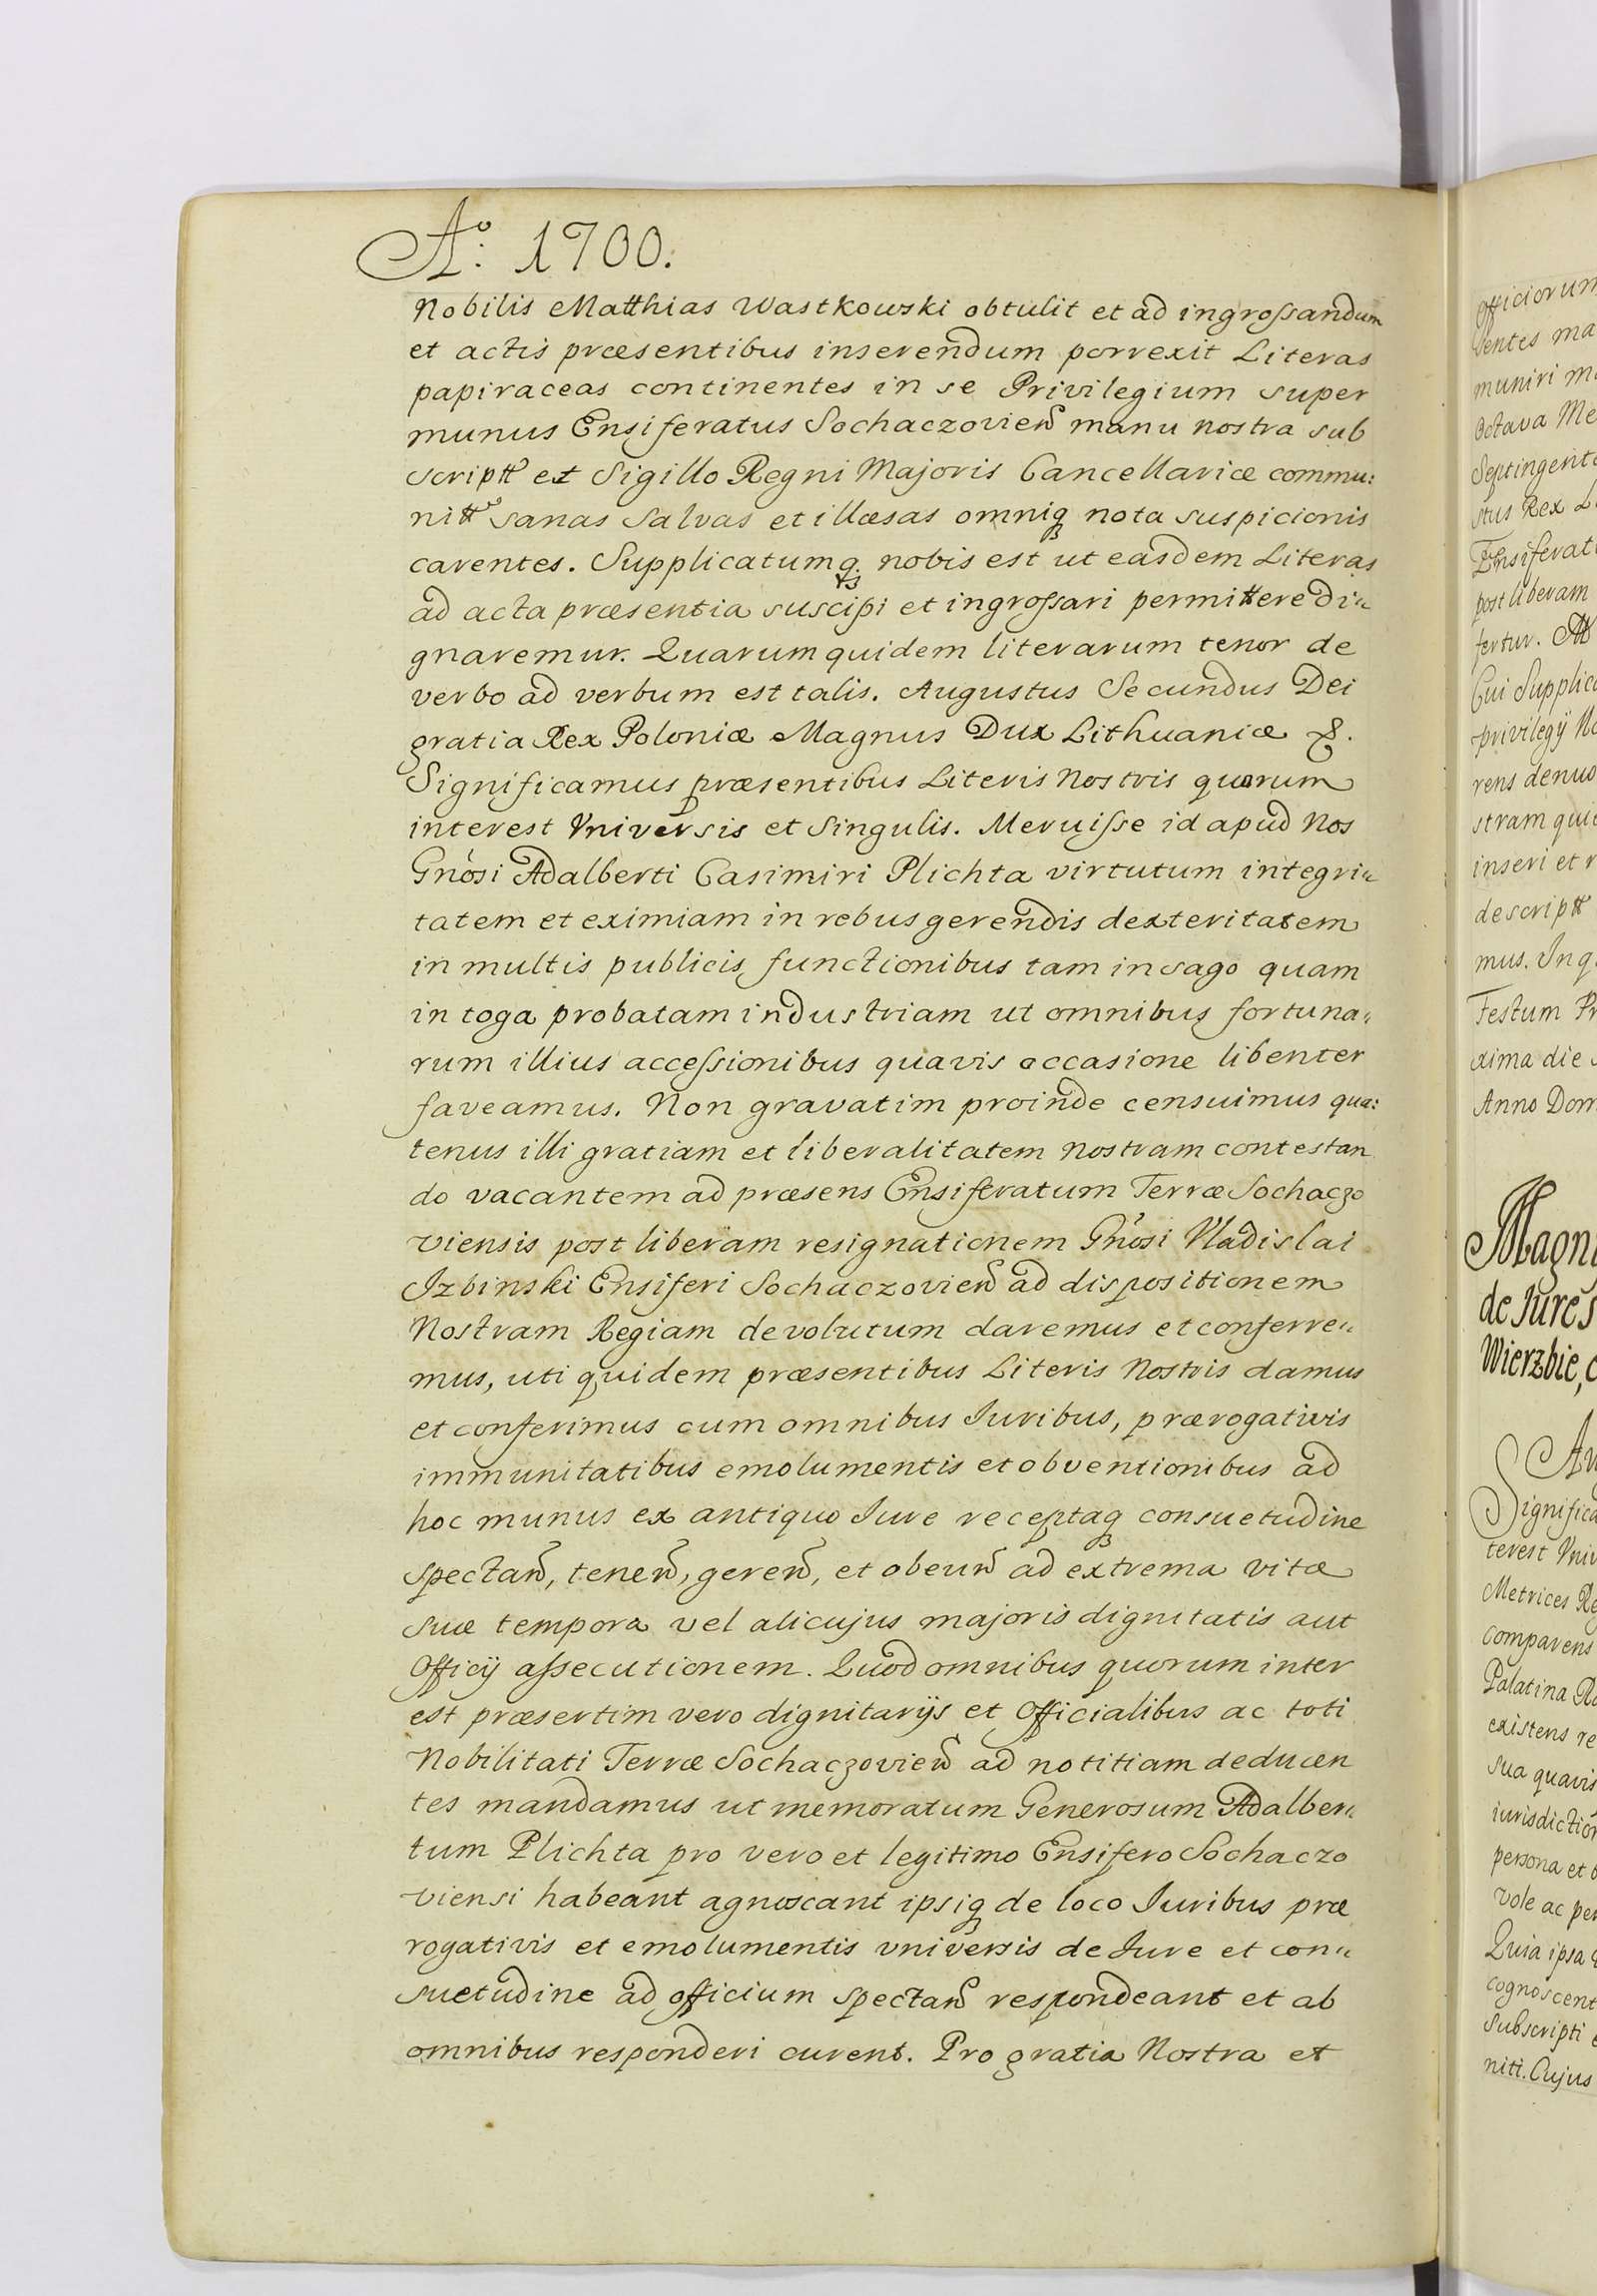 Aº: 1700.
Nobilis Matthias Wastkowski obtulit et ad ingrossandum
et actis præsentibus inserendum porrexit Literas
papiraceas continentes in se Privilegium super
munus Ensiferatus Sochaczovien̄ manu nostra sub
scriptt̃ et Sigillo Regni Majoris Cancellariæ commu:
nitt̃ sanas salvas et illæsas omniq̨ nota suspicionis
carentes. Supplicatumq̨ nobis est ut easdem Literas
ad acta præsentia suscipi et ingrossari permittere di„
gnaremur. Quarum quidem literarum tenor de
verbo ad verbum est talis. Augustus Secundus Dei
gratia Rex Poloniæ Magnus Dux Lithuaniæ &.
Significamus præsentibus Literis Nostris quorum
interest Vniversis et Singulis. Meruisse id apud Nos
Gñosi Adalberti Casimiri Plichta virtutum integri„
tatem et eximiam in rebus gerendis dexteritatem
in multis publicis functionibus tam in sago quam
in toga probatam industriam ut omnibus fortuna„
rum illius accessionibus quavis occasione libenter
faveamus. Non gravatim proinde censuimus qua:
tenus illi gratiam et liberalitatem nostram contestan
do vacantem ad præsens Ensiferatum Terræ Sochaczo
viensis post liberam resignationem Gñosi Vladislai
Izbinski Ensiferi Sochaczovien̄ ad dispositionem
Nostram Regiam devolutum daremus et conferre„
mus, uti quidem præsentibus Literis Nostris damus
et conferimus cum omnibus Iuribus, prærogativis
immunitatibus emolumentis et obventionibus ad
hoc munus ex antiquo Iure receptaq̨ consuetudine
spectan̄, tenen̄, geren̄, et obeun̄ ad extrema vitæ
suæ tempora vel alicujus majoris dignitatis aut
Officij assecutionem. Quod omnibus quorum inter
est præsertim vero dignitarijs et Officialibus ac toti
Nobilitati Terræ Sochaczovien̄ ad notitiam deducen
tes mandamus ut memoratum Generosum Adalber„
tum Plichta pro vero et legitimo Ensifero Sochaczo
viensi habeant agnoscant ipsiq̨ de loco Iuribus præ
rogativis et emolumentis vniversis de Iure et con„
suetudine ad officium spectan̄ respondeant et ab
omnibus responderi curent. Pro gratia Nostra et
officiorum
muniri
Octava
stus Rex
post liberam
fertur.
Cui
privilegij
rens denuo
stram
inseri et
descriptt̃
mus.
Festum
xima die
Anno
de Iure
Wierzbie,
terest
Metrices
comparens
Palatina
existens
sua quavis
persona et
vole ac
Quia ipsa
Subscripti
niti. Cujus